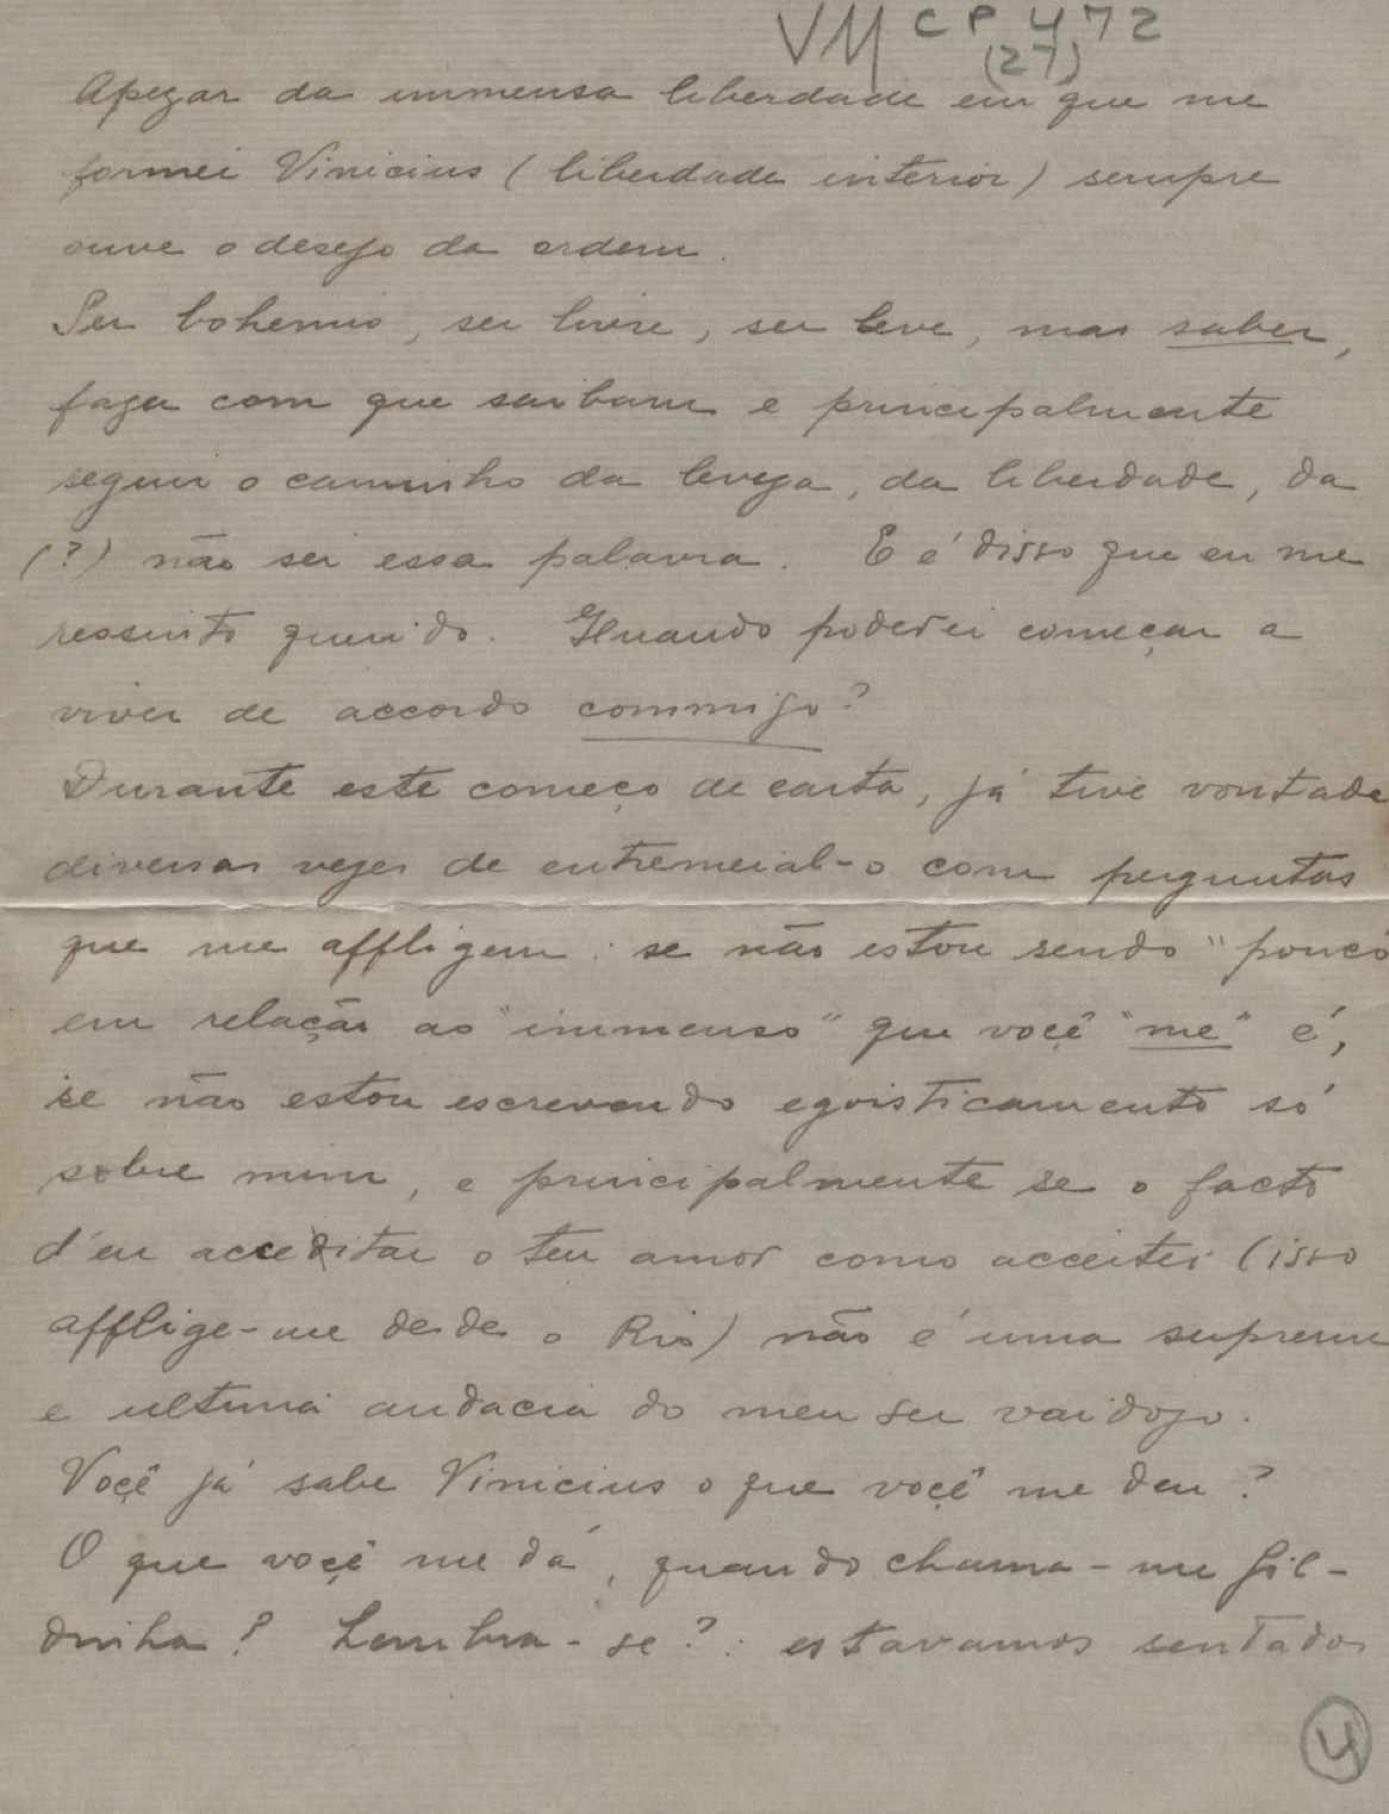 VM CP 472
(27)
Apezar da immensa liberdade em que me
formei Vinicius (liberdade interior) sempre
ouve o desejo da ordem.
Ser bohemio, ser livre, ser leve, mas saber,
fazer com que saibam e principalmente
seguir o caminho da leveza, da liberdade, da
(?) não sei essa palavra. E é disso que eu me
ressinto querido. Quando poderei começar a
viver de accordo commigo?
Durante este começo de carta, já tive vontade
diversas vezes de entremeial-o com perguntas
que me affligem: se não estou sendo "pouco"
em relação ao "immenso" que você "me" é,
se não estou escrevendo egoisticamente só
sobre mim, e principalmente se o facto
d'eu acreditar o teu amor como acceitei (isso
afflige-me desde o Rio) não é uma suprema
e ultima audacia do meu ser vaidozo.
Voçê já sabe Vinicius o que voçê me deu?
O que voçê me dá, quando chama-me Gil-
dinha! Lembra-se?: estavamos sentados
4